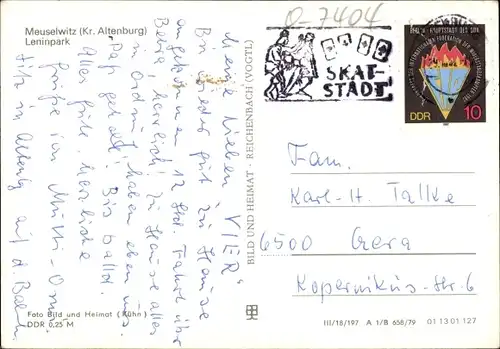 Meuselwitz (Kr. Altenburg)
Leninpark
O-7404
SKAT-
STADT
BERLIN HAUPTSTADT DER DDR
DDR 10
Meine lieben "VIER"
Bin wieder gut zu Hause
angekommen 12 Std. Fahrt über
Bebra, herrlich! Zu Hause alles
in Ordn. haben eben uns.
Pap gehabt! Bis bald.
Alles gute, herzliche
Grüße von Mutti - Oma
Sitz in Altenbg auf d. Bahn.
BILD UND HEIMAT · REICHENBACH (VOGTL)
Fam.
Karl-H. Talke
6500 Gera
Kopernikus-Str. 6
Foto Bild und Heimat (Kühn)
DDR 0,25 M
III/18/197 A 1/B 658/79 01 13 01 127